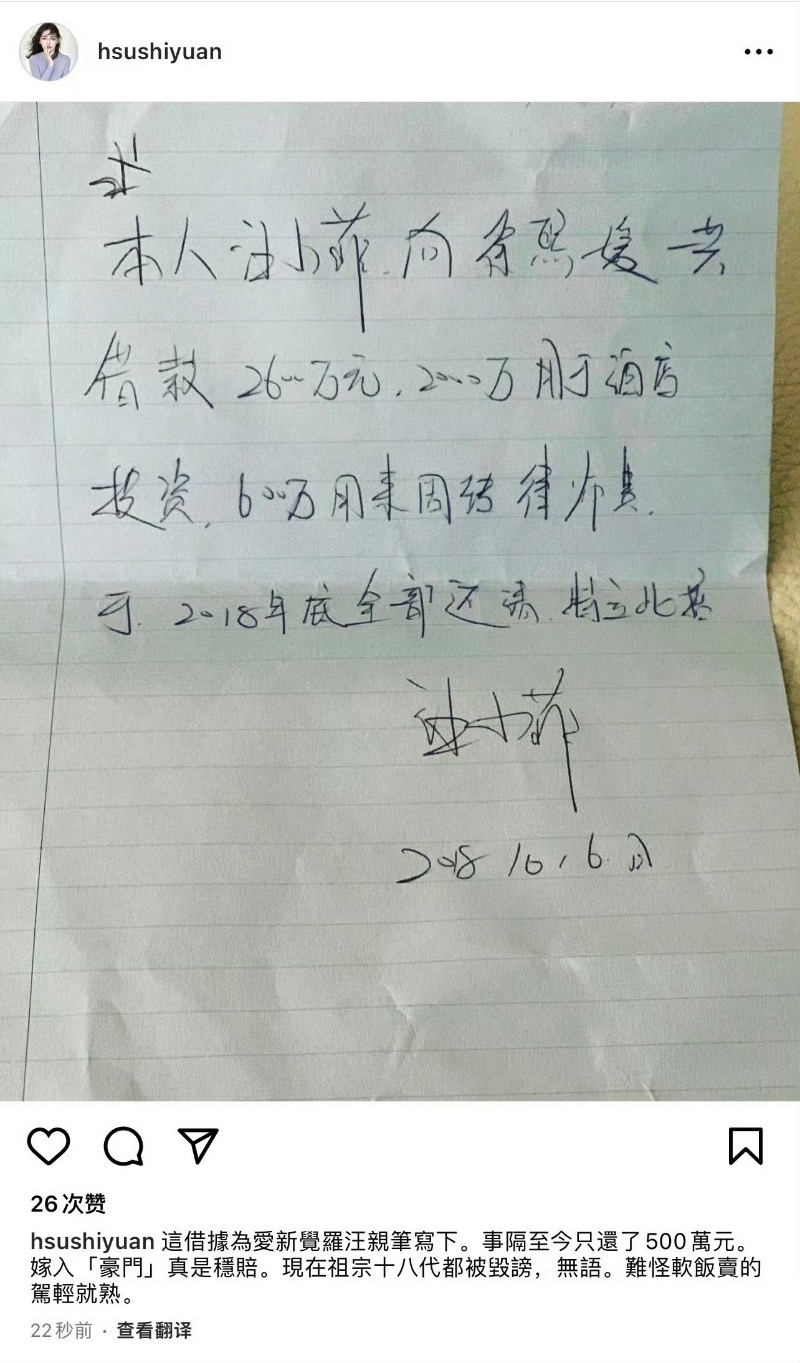 hsushiyuan
本人汪小菲.向徐熙媛共
借款 2600万元,2000万用于酒店
投资,600万用来周转律师费.
于.2018年底全部还清.特立此据
汪小菲
26次赞
hsushiyuan 這借據為愛新覺羅汪親筆寫下。事隔至今只還了500萬元。
嫁入「豪門」真是穩賠。現在祖宗十八代都被毀謗，無語。難怪軟飯賣的
駕輕就熟。
22秒前 · 查看翻译